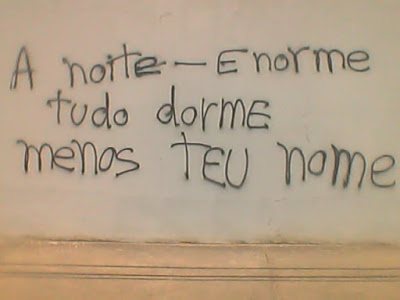 A noite — Enorme
tudo dorme
menos TEU nome